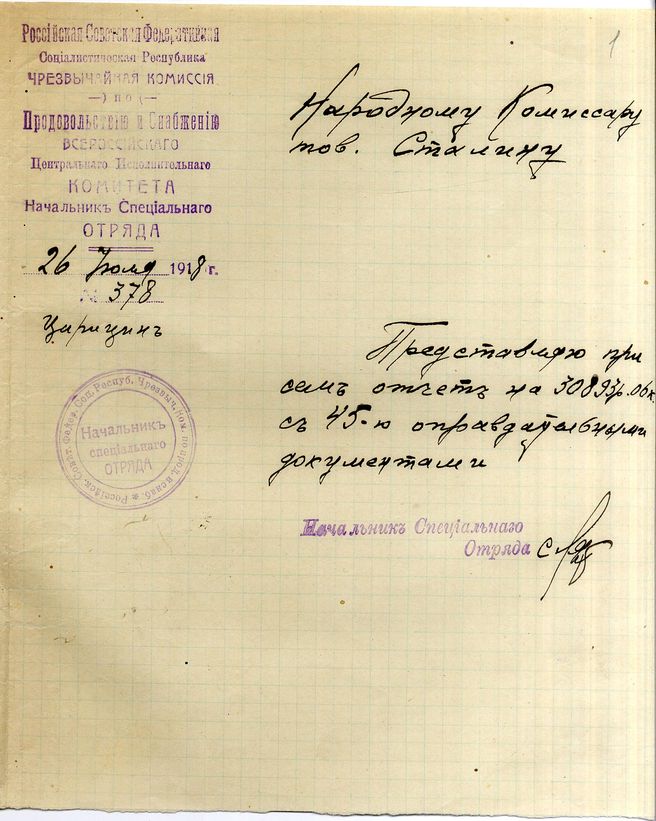 1
Россійская Советская Федеративная
Соціалистическая Республика
ЧРЕЗВЫЧАЙНАЯ КОМИССІЯ
—) по (—
Продовольствію и Снабженію
ВСЕРОССІЙСКАГО
Центральнаго Исполнительнаго
КОМИТЕТА
Начальникъ Спеціальнаго
ОТРЯДА
26 Июля 1918 г.
№ 378
Царицинъ
Народному Комиссару
тов. Сталину
Представляю при
семъ отчетъ на 30893р.06к.
съ 45-ю оправдательными
документами
Начальникъ Спеціальнаго
Отряда
Россійск. Совѣт. Федер. Соц. Респуб. Чрезвыч. Ком. по прод. и снаб.
Начальникъ
спеціальнаго
ОТРЯДА